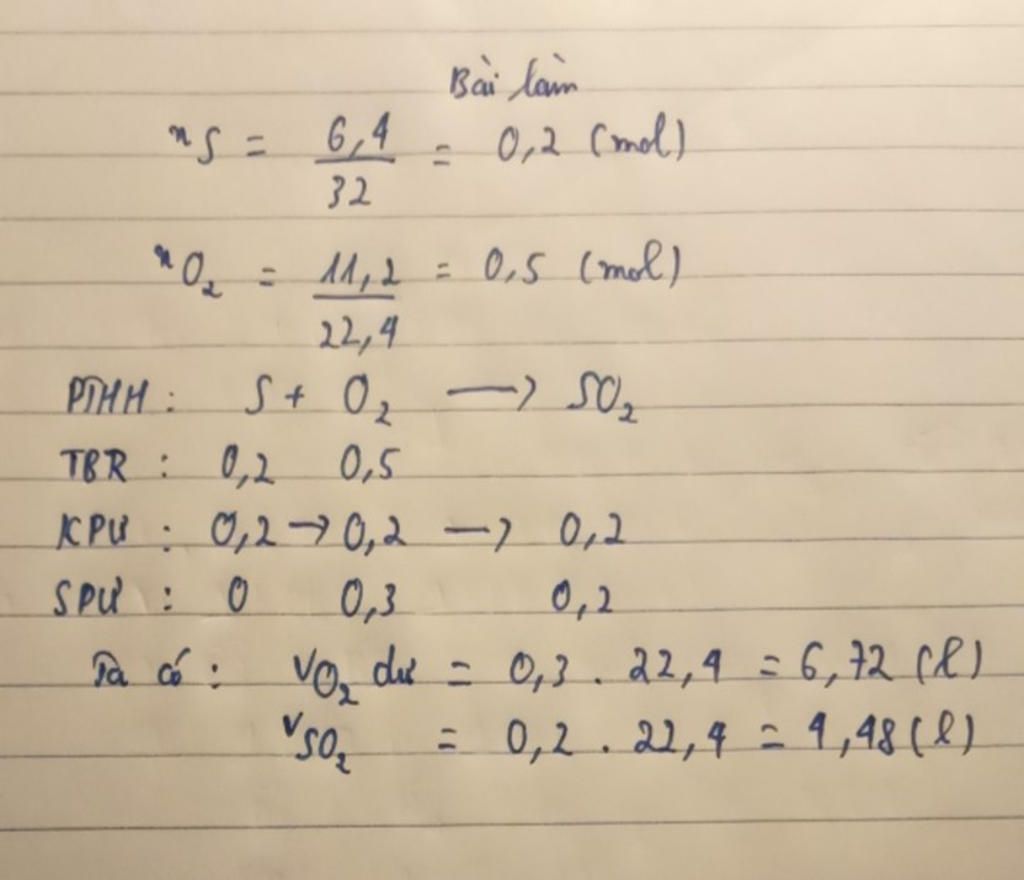 Bài làm
nS = 6,4/32 = 0,2 (mol)
nO₂ = 11,2/22,4 = 0,5 (mol)
PTHH : S + O₂ → SO₂
TBR : 0,2 0,5
KPƯ : 0,2 → 0,2 → 0,2
SPƯ : 0 0,3 0,2
Ta có : VO₂ dư = 0,3 . 22,4 = 6,72 (l)
VSO₂ = 0,2 . 22,4 = 4,48 (l)